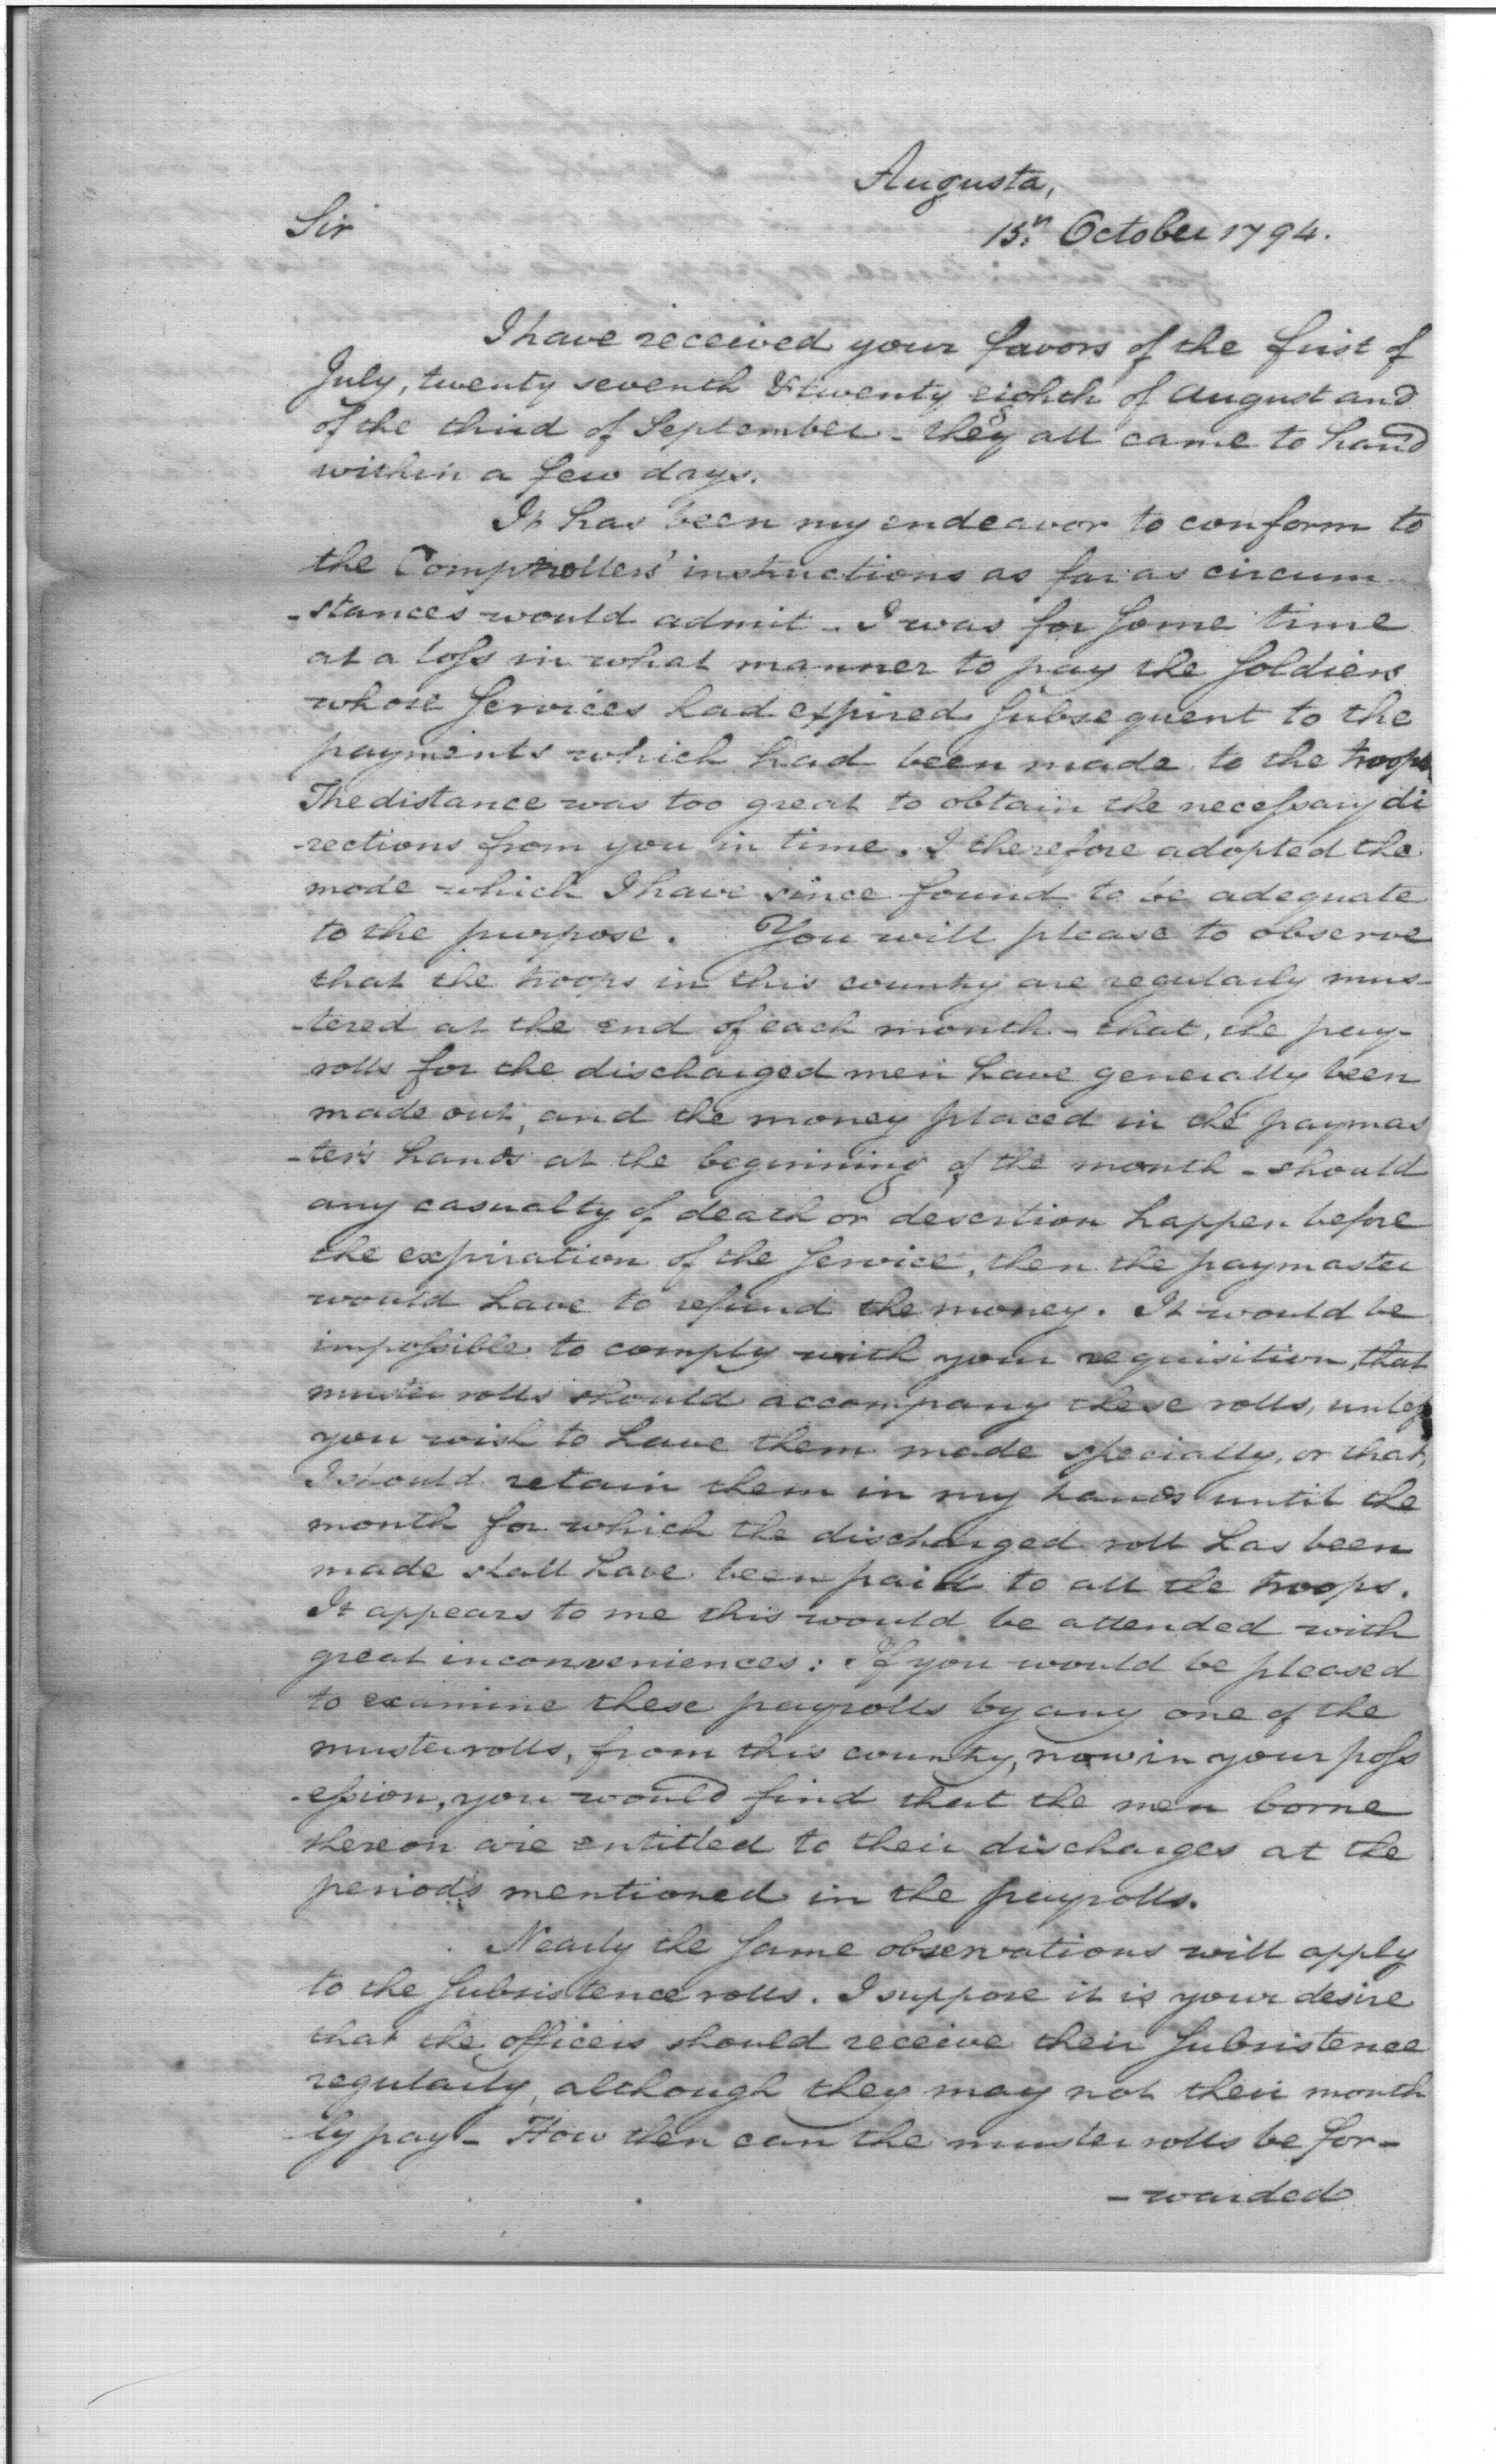 Augusta,
Sir
15th October 1794.
I have received your favors of the first of
July, twenty seventh & twenty eighth of August and
of the third of September - they all came to hand
within a few days.
It has been my endeavor to conform to
the Comptrollers' instructions as far as circum-
-stances would admit - I was for some time
at a loss in what manner to pay the soldiers
whose services had expired subsequent to the
payments which had been made to the troops
The distance was too great to obtain the necessary di
-rections from you in time. I therefore adopted the
mode which I have since found to be adequate
to the purpose. You will please to observe
that the troops in this country are regularly mus-
-tered at the end of each month - that, the pay-
rolls for the discharged men have generally been
made out, and the money placed in the paymas
-ter's hands at the beginning of the month - should
any casualty of death or desertion happen before
the expiration of the service, then the paymaster
would have to refund the money. It would be
impossible to comply with your requisition, that
muster rolls should accompany these rolls, unless
you wish to have them made specially, or that,
I should retain them in my hands until the
month for which the discharged roll has been
made shall have been paid to all the troops.
It appears to me this would be attended with
great inconveniences: If you would be pleased
to examine these payrolls by any one of the
musterrolls, from this country, now in your poss
-ession, you would find that the men borne
thereon are entitled to their discharges at the
periods mentioned in the payrolls.
Nearly the same observations will apply
to the subsistence rolls. I suppose it is your desire
that the officers should receive their subsistence
regularly, although they may not their month
-ly pay - How then can the muster rolls be for-
- warded